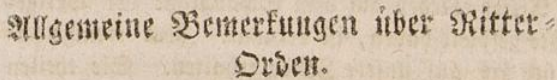 Allgemeine Bemerkungen über Ritter-
Orden.